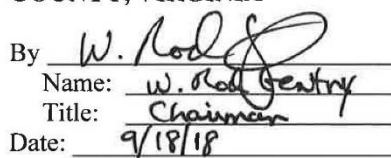 By W. Rod
Name: W. Rod Gentry
Title: Chairman
Date: 9/18/18